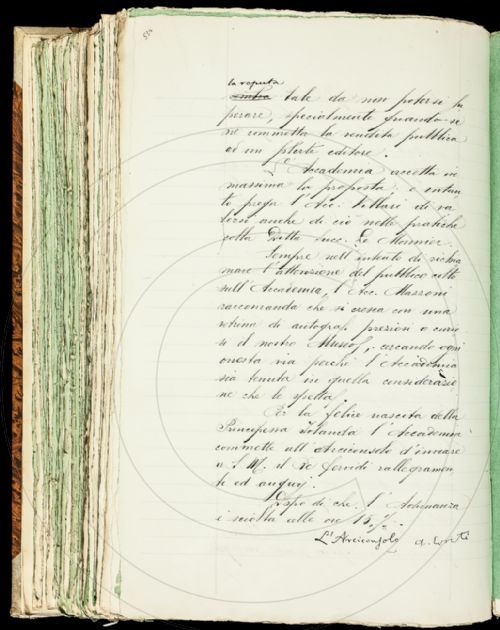 tale da non potersi su
perare, specialmente quando se
ne commetta la vendita pubblica
ad un editore.
L'Accademia accetta in
massima la proposta; e
prega l'Acc. Vitturi di
anche di ciò nelle pratiche
colla Ditta Succ. Le Monnier.
Sempre nell'intento di richia
mare l'attenzione del pubblico colto
sull'Accademia, l'Acc. Mazzoni
raccomanda che si cresca con una
vetrina di autografi preziosi o curio
si il nostro Museo, cercando ogni
onesta via perché l'Accademia
sia tenuta in quella considerazio
ne che le spetta.
Per la felice nascita della
Principessa Iolanda l'Accademia
commette all'Arciconsolo d'inviare
a S. M. il Re fervidi rallegramen
ti ed augurj.
Dopo di che, l'Adunanza
è sciolta alle ore
L'Arciconsolo A. Conti